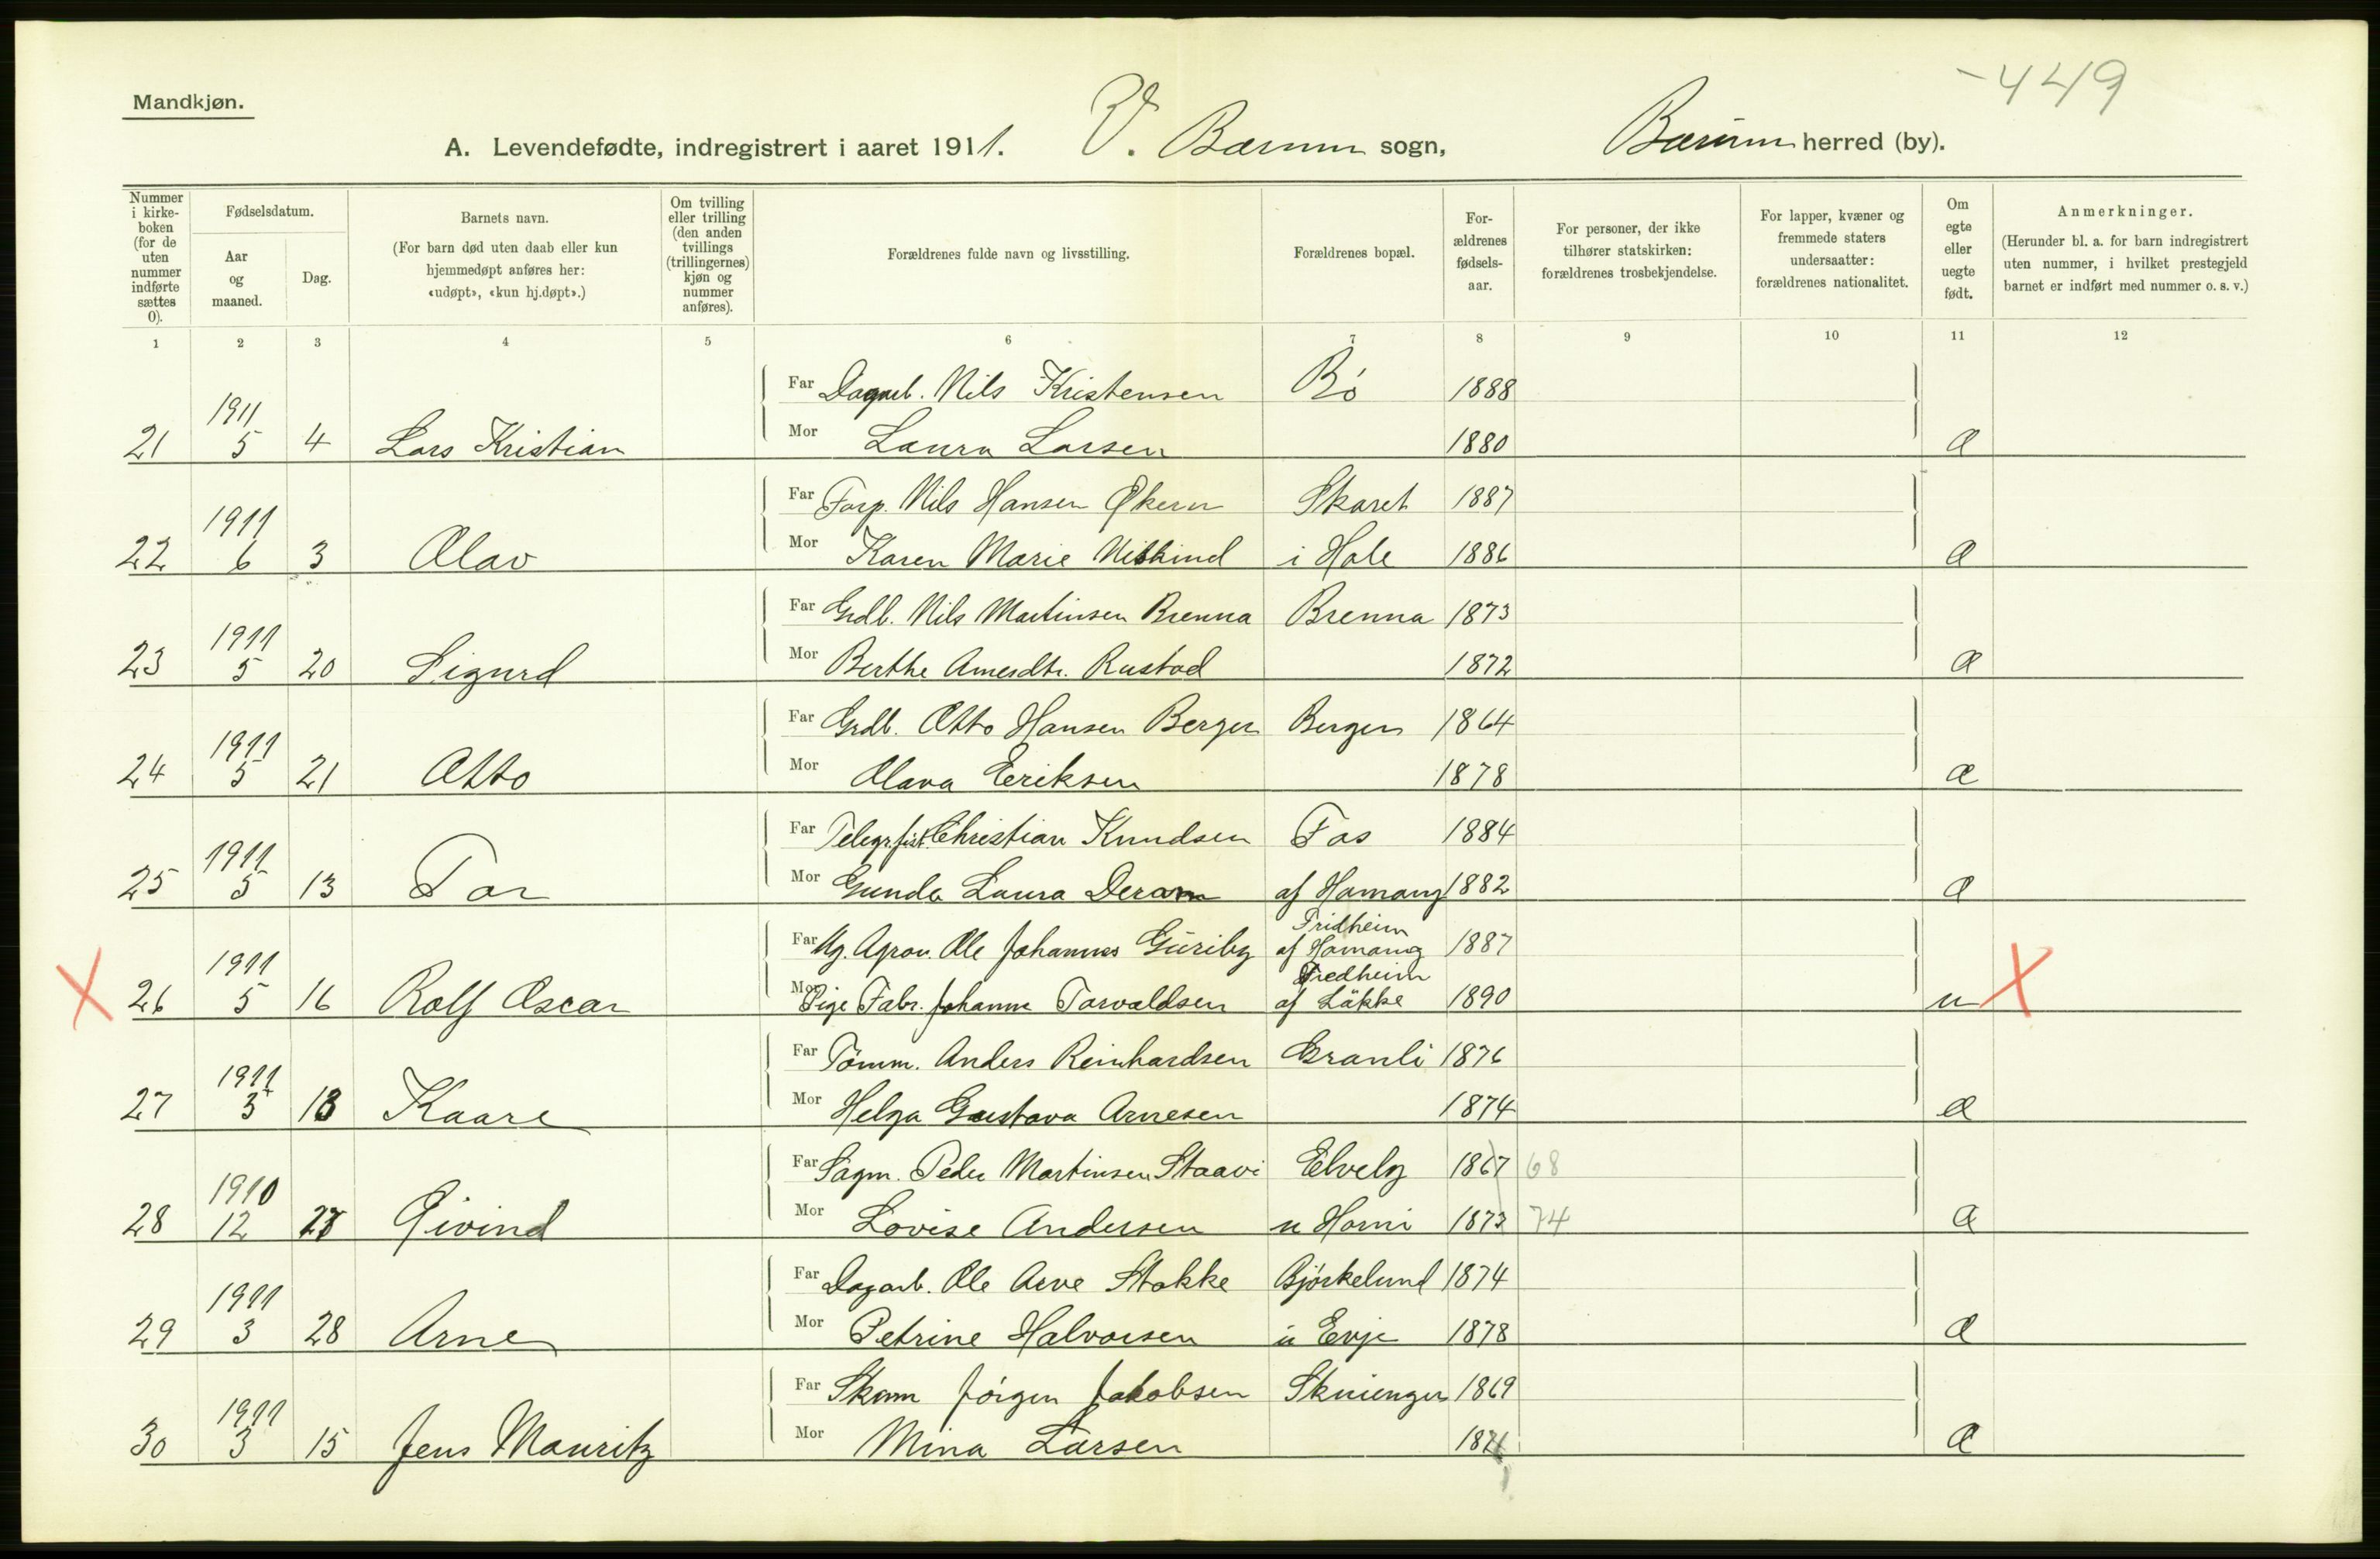 -449
Mandkjøn.
A. Levendefødte, indregistrert i aaret 1911. V. Bærum sogn, Bærum herred (by).
Nummer i kirke-boken (for de uten nummer indførte sættes 0).
Fødselsdatum.
Aar og maaned.
Dag.
Barnets navn.
(For barn død uten daab eller kun hjemmedøpt anføres her: «udøpt», «kun hj.døpt».)
Om tvilling eller trilling (den anden tvillings (trillingernes) kjøn og nummer anføres).
Forældrenes fulde navn og livsstilling.
Forældrenes bopæl.
For-ældrenes fødsels-aar.
For personer, der ikke tilhører statskirken: forældrenes trosbekjendelse.
For lapper, kvæner og fremmede staters undersaatter: forældrenes nationalitet.
Om egte eller uegte født.
Anmerkninger.
(Herunder bl. a. for barn indregistrert uten nummer, i hvilket prestegjeld barnet er indført med nummer o. s. v.)
1 2 3 4 5 6 7 8 9 10 11 12
Far Dagarb. Nils Kristensen Bö 1888
21 1911 5 4 Lars Kristian Mor Laura Larsen 1880 Æ
Far Forp. Nils Hansen Økern Skaret 1887
22 1911 6 3 Olav Mor Karen Marie i Hole 1886 Æ
Far Grdb. Nils Martinsen Brenna Brenna 1873
23 1911 5 20 Sigurd Mor Berthe Amesdtr. Rustad 1872 Æ
Far Grdb. Otto Hansen Berger Berger 1864
24 1911 5 21 Otto Mor Olava Eriksen 1878 Æ
Far Telegr.fist. Christian Knudsen Fos 1884
25 1911 5 13 Tor Mor Gunda Laura af Hamang 1882 Æ
Far Ug. Agron. Ole Johannes Güriby Fridheim af Hamang 1887
X 26 1911 5 16 Rolf Oscar Mor Pige Fabr. Johanne Torvaldsen Fredheim af Läkke 1890 u X
Far Tömm. Anders Reinhardsen Granli 1876
27 1911 3 13 Kaare Mor Helga Gustava Arnesen 1874 Æ
Far Sagm. Peder Martinsen Staavi Elvely 1867 68
28 1910 12 27 Øivind Mor Lovise Andersen u Horni 1873 74 Æ
Far Dagarb. Ole Arve Stokke Björkelund 1874
29 1911 3 28 Arne Mor Petrine Halvorsen u Evje 1878 Æ
Far Skom Jörgen Jakobsen Skuienger 1869
30 1911 3 15 Jens Mauritz Mor Mina Larsen Æ